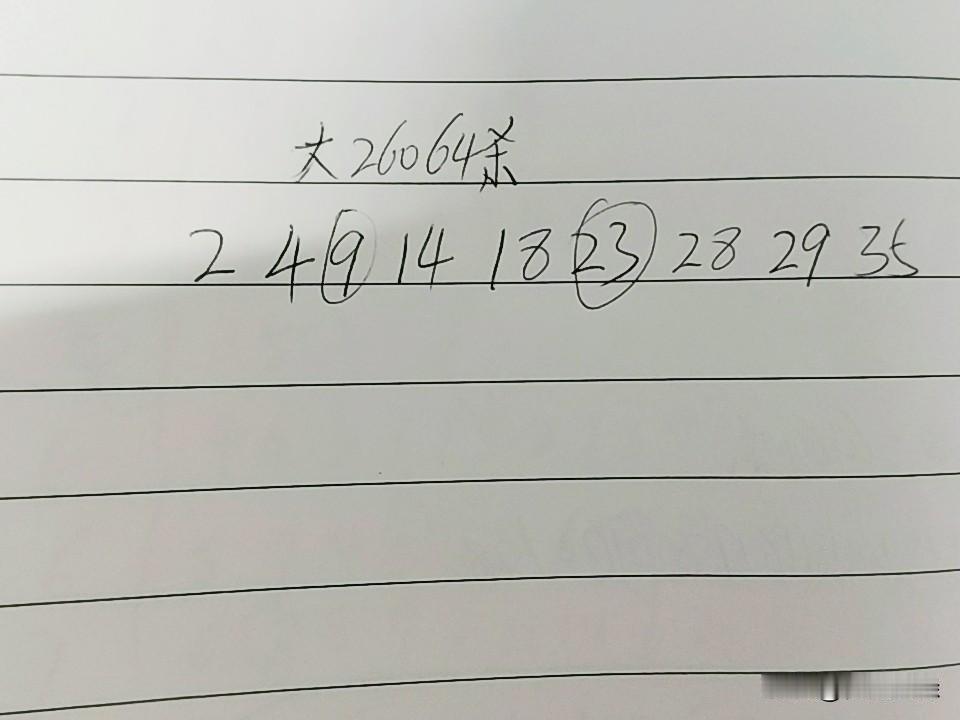 大26064杀
2 4 9 14 18 23 28 29 35